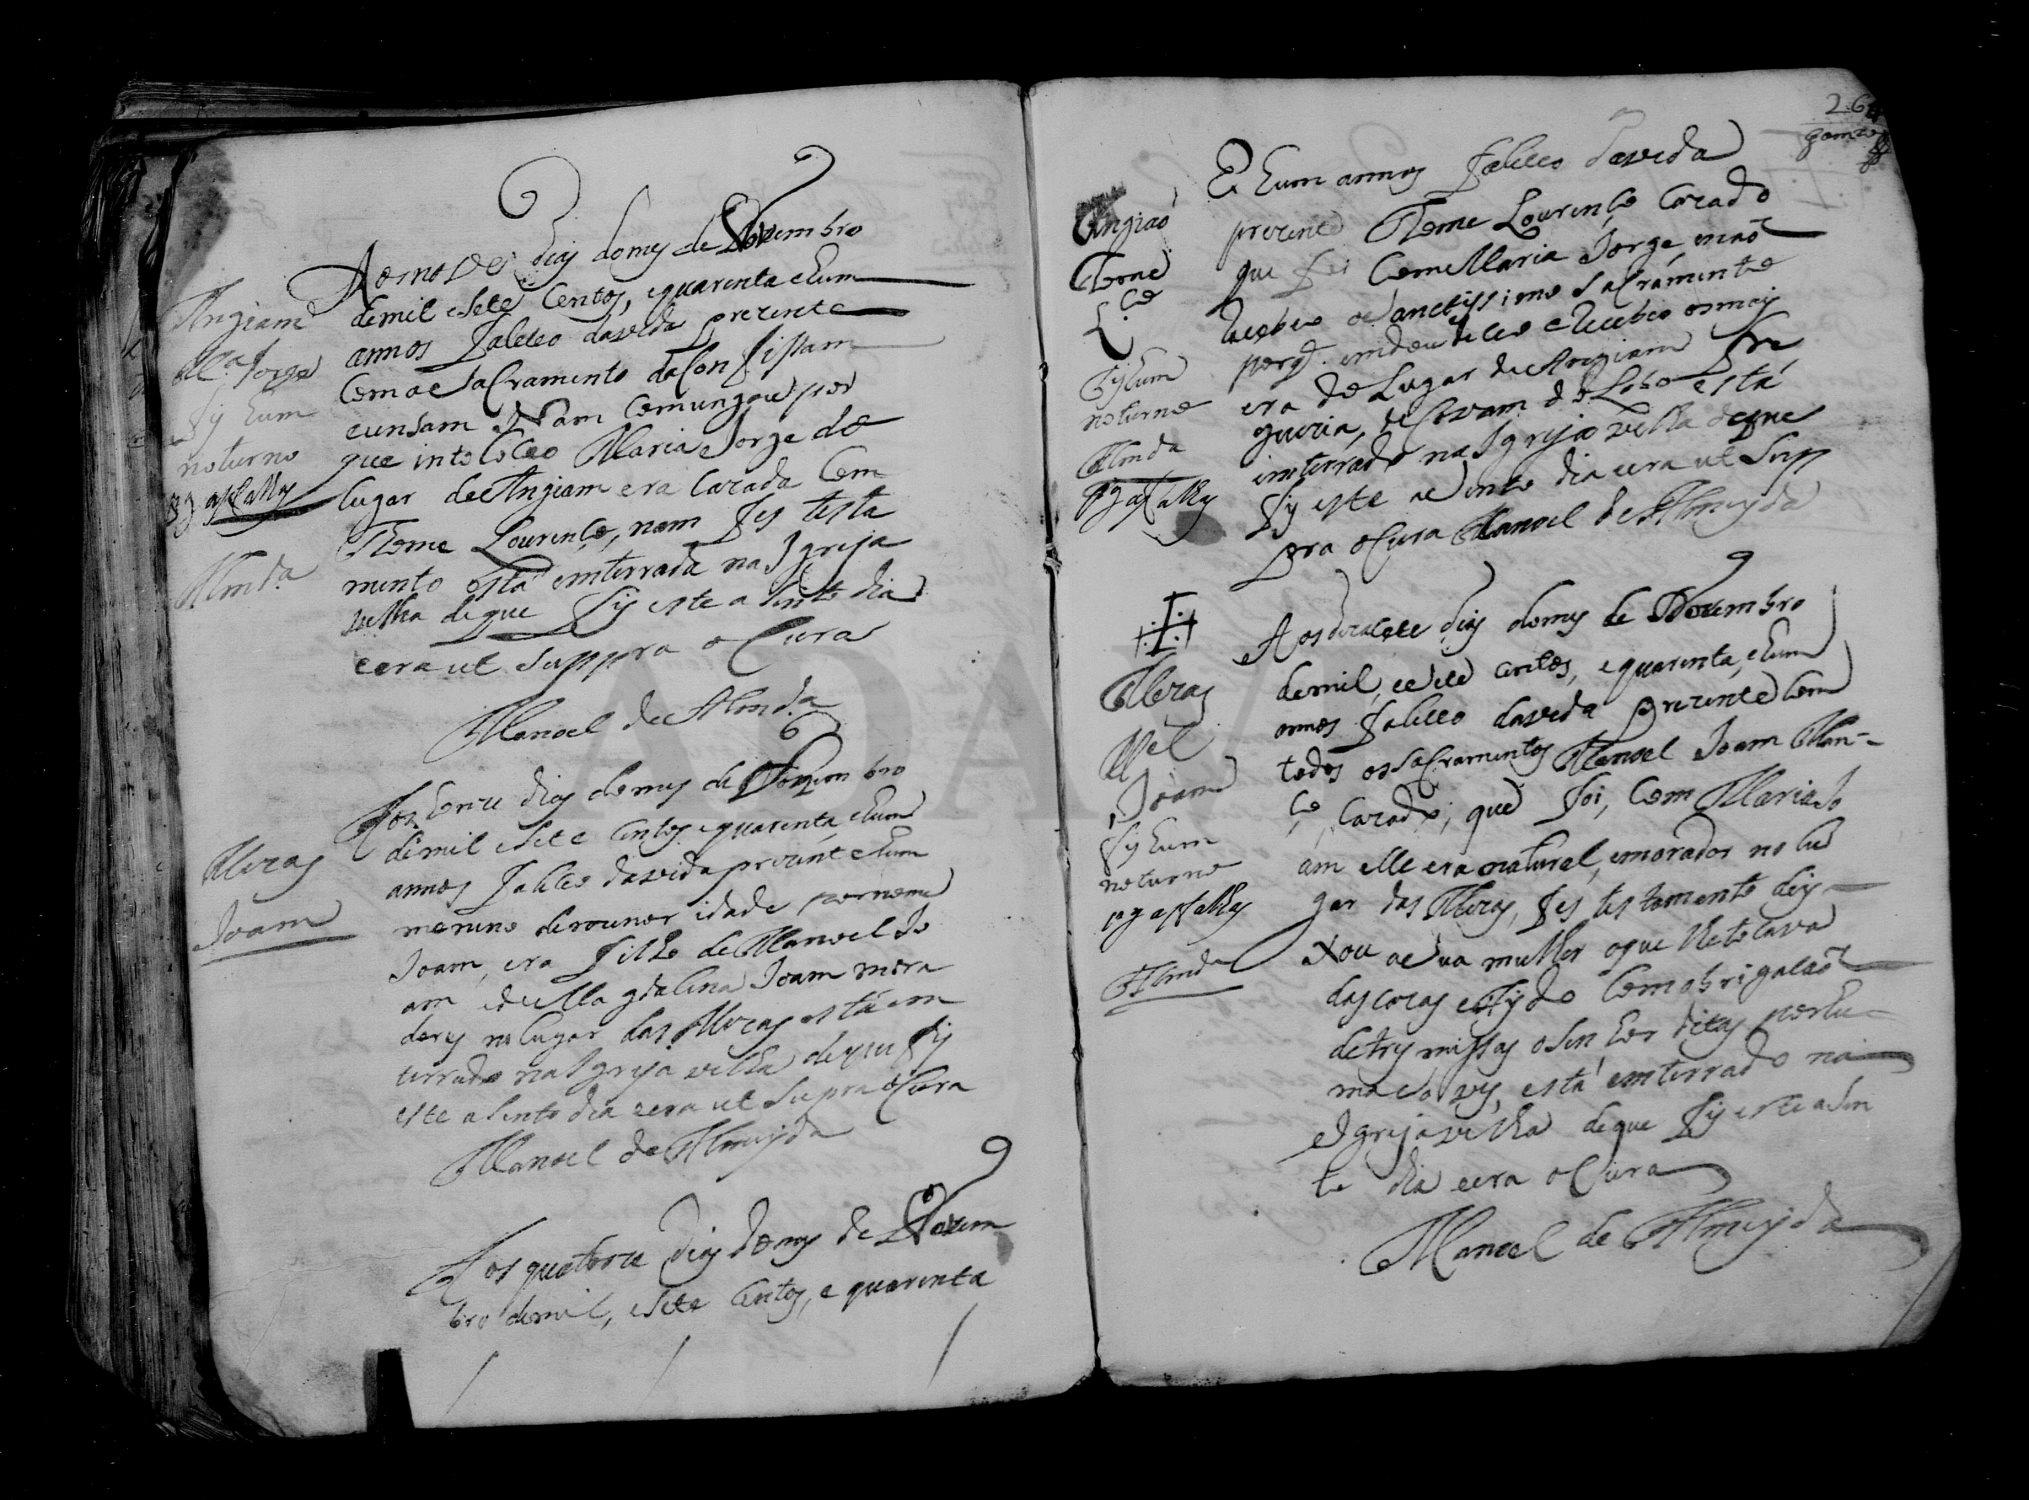 Angiam
M.ª Jorge
fis hum
noturno
pg as fallas
Almd.ª
Aos nos des dias do mes de Novembro
de mil e sete centos, e quarenta e hum
annos faleceo da vida prezente
com o sacramento da Confissam
e unsam e Nam comungou por
que intoloceo Maria Jorge do
lugar de Angiam era cazada com
Thome Lourenço, nam fes testa
mento está emterrada na Igreja
velha de que fis este asento dia
e era ut suppra o Cura
Manoel de Almd.ª
Meras
Joam
Aos honze dias do mes de Novembro
de mil e sete centos e quarenta e hum
annos faleceo da vida prezente hum
menino de menor idade por nome
Joam, era filho de Manoel Jo
am e de Magdalena Joam mora
dores no lugar das Meras está em
terrado na Igreja velha de que fis
este asento dia e era ut supra o Cura
Manoel de Almeyda
Aos quatorze dias do mes de Novem
bro de mil, e sete centos, e quarenta
264
E hum annos faleceo da vida
Angiaõ
Thome
L.ço
fis hum
noturno
Almda
pg as fallas
prezente Thome Lourenço cazado
que foi com Maria Jorge e naõ
recebeo o Sanctissimo sacramento
porq. emdoudeceo e recebeo os mais
era do Lugar de Angiam fre
guezia de Covam do Lobo está
emterrado na Igreja velha de que
fis este asento dia e era ut sup
pra o Cura Manoel de Almeyda
Meras
Mel
Joam
fis hum
noturno
pg as fallas
Almda
Aos dezasete dias do mes de Novembro
de mil, e sete centos, e quarenta, e hum
annos faleceo da vida prezente com
todos os sacramentos Manoel Joam Man-
ço, cazado; que foi, com Maria Jo
am elle era natural, e morador no lu
gar das Meras, fes testamento dei
xou a sua mulher o que lhe tocava
das cazas e isydo com obrigaçaõ
de tres missas o sinhor ditas por hu
ma só ves, está emterrado na
Igreja velha de que fis este asen
to dia e era o Cura
Manoel de Almeyda